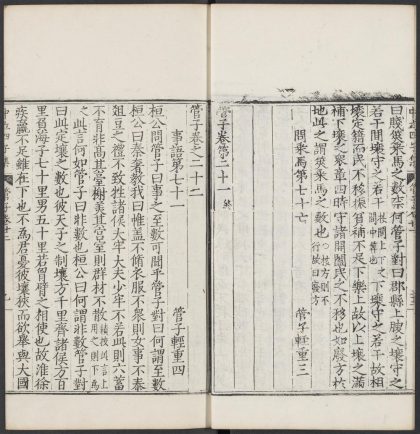 曰賤筴乘馬之數柰何管子對曰郡縣上臾之壤守之
若干間壤守之若干下壤守之若干故相
壤定籍而民不移振貧補不足下樂上故以上壤之滿
補下壤之眾章四時守諸開闔民之不移也如廢方於
地此之謂筴乘馬之數也
問乘馬第七十六
管子輕重三
管子卷第二十一
管子卷之二十二
事語第七十一
管子輕重四
桓公問管子曰事之至數可聞乎管子對曰何謂至數
桓公曰秦奢教我曰帷蓋不脩衣服不眾則女事不泰
俎豆之禮不致牲諸侯太牢大夫少牢不若此則六畜
不育非高其臺榭美其宮室則群材不散
此言何如管子曰非數也桓公曰何謂非數管子對
曰此定壤之數也彼天子之制壤方千里齊諸侯方百
里負海子七十里男五十里若胷臂之相使也故淮徐
疾羸不足雖在下也不為君憂彼壤狹而欲舉與大國